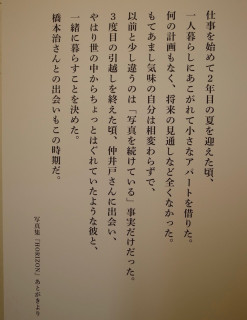 仕事を始めて2年目の夏を迎えた頃、
一人暮らしにあこがれて小さなアパートを借りた。
何の計画もなく、将来の見通しなど全くなかった。
もてあまし気味の自分は相変わらずで、
以前と少し違うのは「写真を続けている」事実だけだった。
3度目の引越しを終えた頃、仲井戸さんに出会い、
やはり世の中からちょっとはぐれていたような彼と、
一緒に暮らすことを決めた。
橋本治さんとの出会いもこの時期だ。
写真集「HORIZON」あとがきより